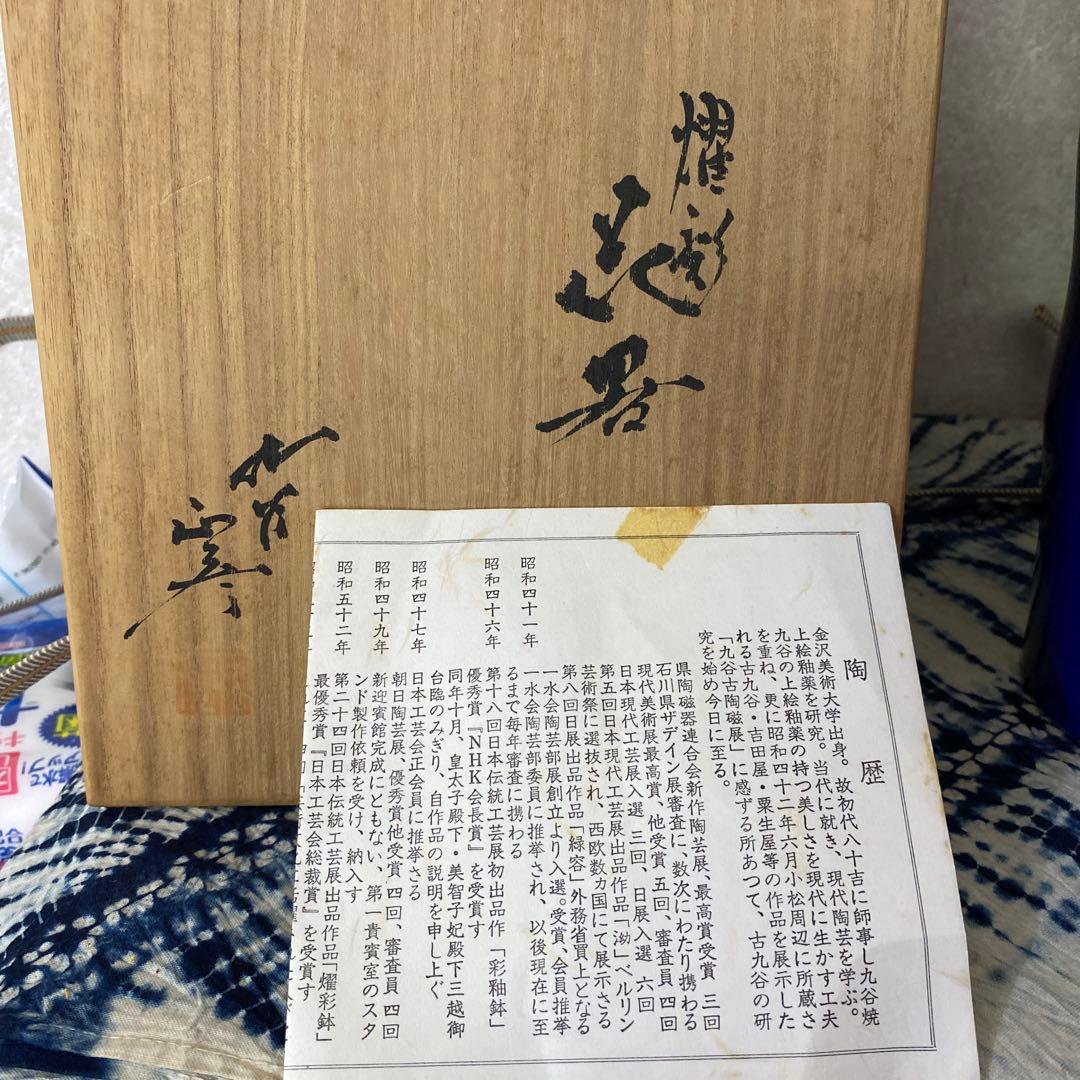 燿彩
花器
九谷
陶歴
金沢美術大学出身。故初代八十吉に師事し九谷焼
上絵釉薬を研究。当代に就き、現代陶芸を学ぶ。
九谷の上絵釉薬の持つ美しさを現代に生かす工夫
を重ね、更に昭和四十二年六月小松周辺に所蔵さ
れる古九谷・吉田屋・粟生屋等の作品を展示した
「九谷古陶磁展」に感ずる所あつて、古九谷の研
究を始め今日に至る。
県陶磁器連合会新作陶芸展、最高賞受賞 三回
石川県デザイン展審査に、数次にわたり携わる
現代美術展最高賞、他受賞 五回、審査員 四回
日本現代工芸展入選 三回、日展入選 六回
第五回日本現代工芸展出品作品「泑」ベルリン
芸術祭に選抜され、西欧数カ国にて展示さる
昭和四十一年
第八回日展出品作品「緑容」外務省買上となる
一水会陶芸部展創立より入選。受賞、会員推挙
一水会陶芸部委員に推挙され、以後現在に至
るまで毎年審査に携わる
昭和四十六年
第十八回日本伝統工芸展初出品作「彩釉鉢」
優秀賞『NHK会長賞』を受賞す
同年十月、皇太子殿下・美智子妃殿下三越御
台臨のみぎり、自作品の説明を申し上ぐ
昭和四十七年
日本工芸会正会員に推挙さる
朝日陶芸展、優秀賞他受賞 四回、審査員 四回
昭和四十九年
新迎賓館完成にともない、第一貴賓室のスタ
ンド製作依頼を受け、納入す
昭和五十二年
第二十四回日本伝統工芸展出品作品「燿彩鉢」
最優秀賞『日本工芸会総裁賞』を受賞す